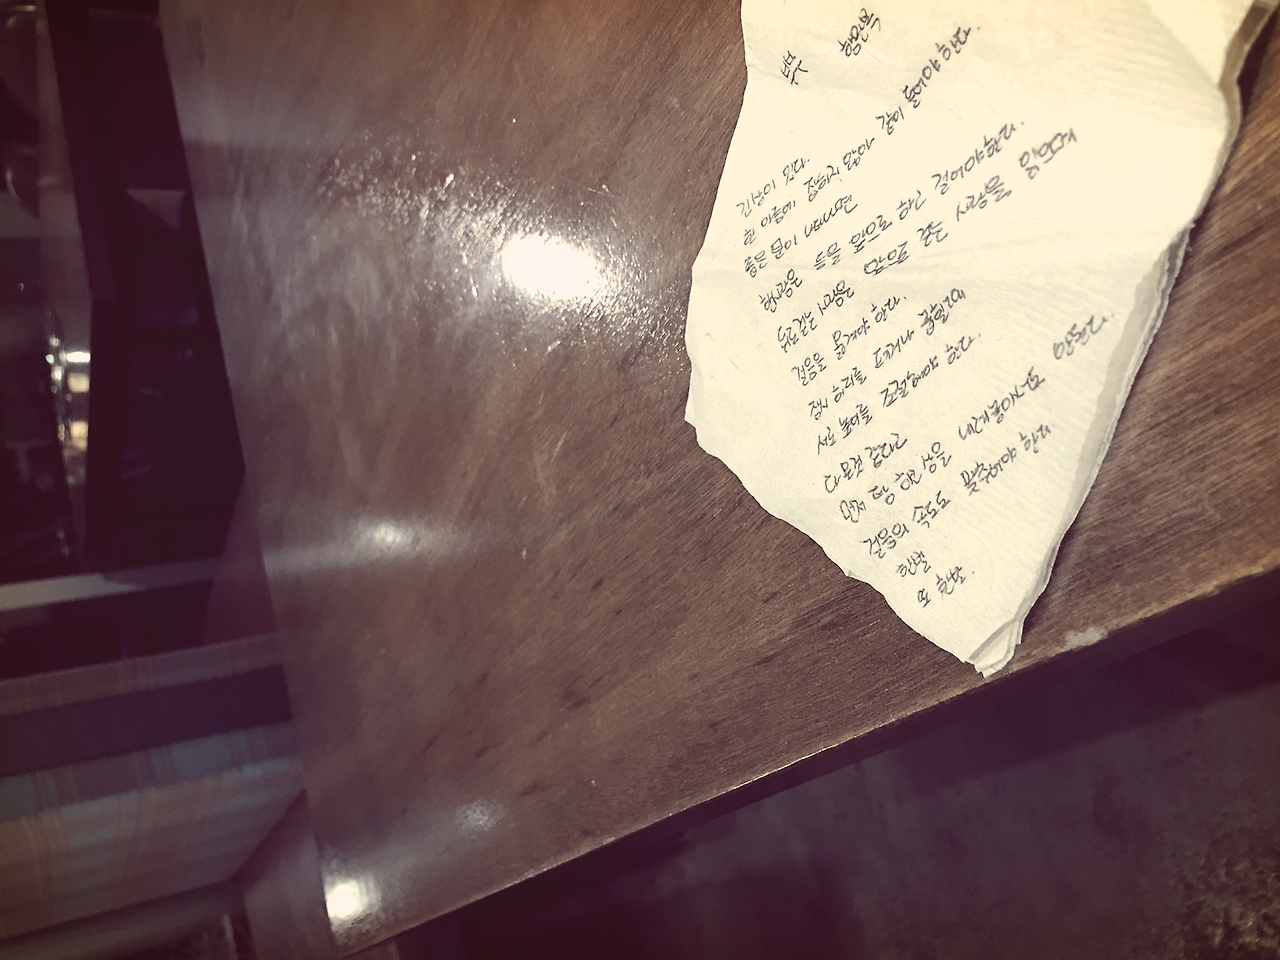 부부 함민복
긴 상이 있다.
한 아름에 잡히지 않아 같이 들어야 한다.
좁은 문이 나타나면
한 사람은 등을 앞으로 하고 걸어야 한다.
뒤로 걷는 사람은 앞으로 걷는 사람을 읽으며
걸음을 옮겨야 한다.
잠시 허리를 펴거나 굽힐 때
서로 높이를 조절해야 한다.
다 온 것 같다고
먼저 탕 하고 상을 내려놓아서도 안된다.
걸음의 속도도 맞추어야 한다.
한 발
또 한 발.